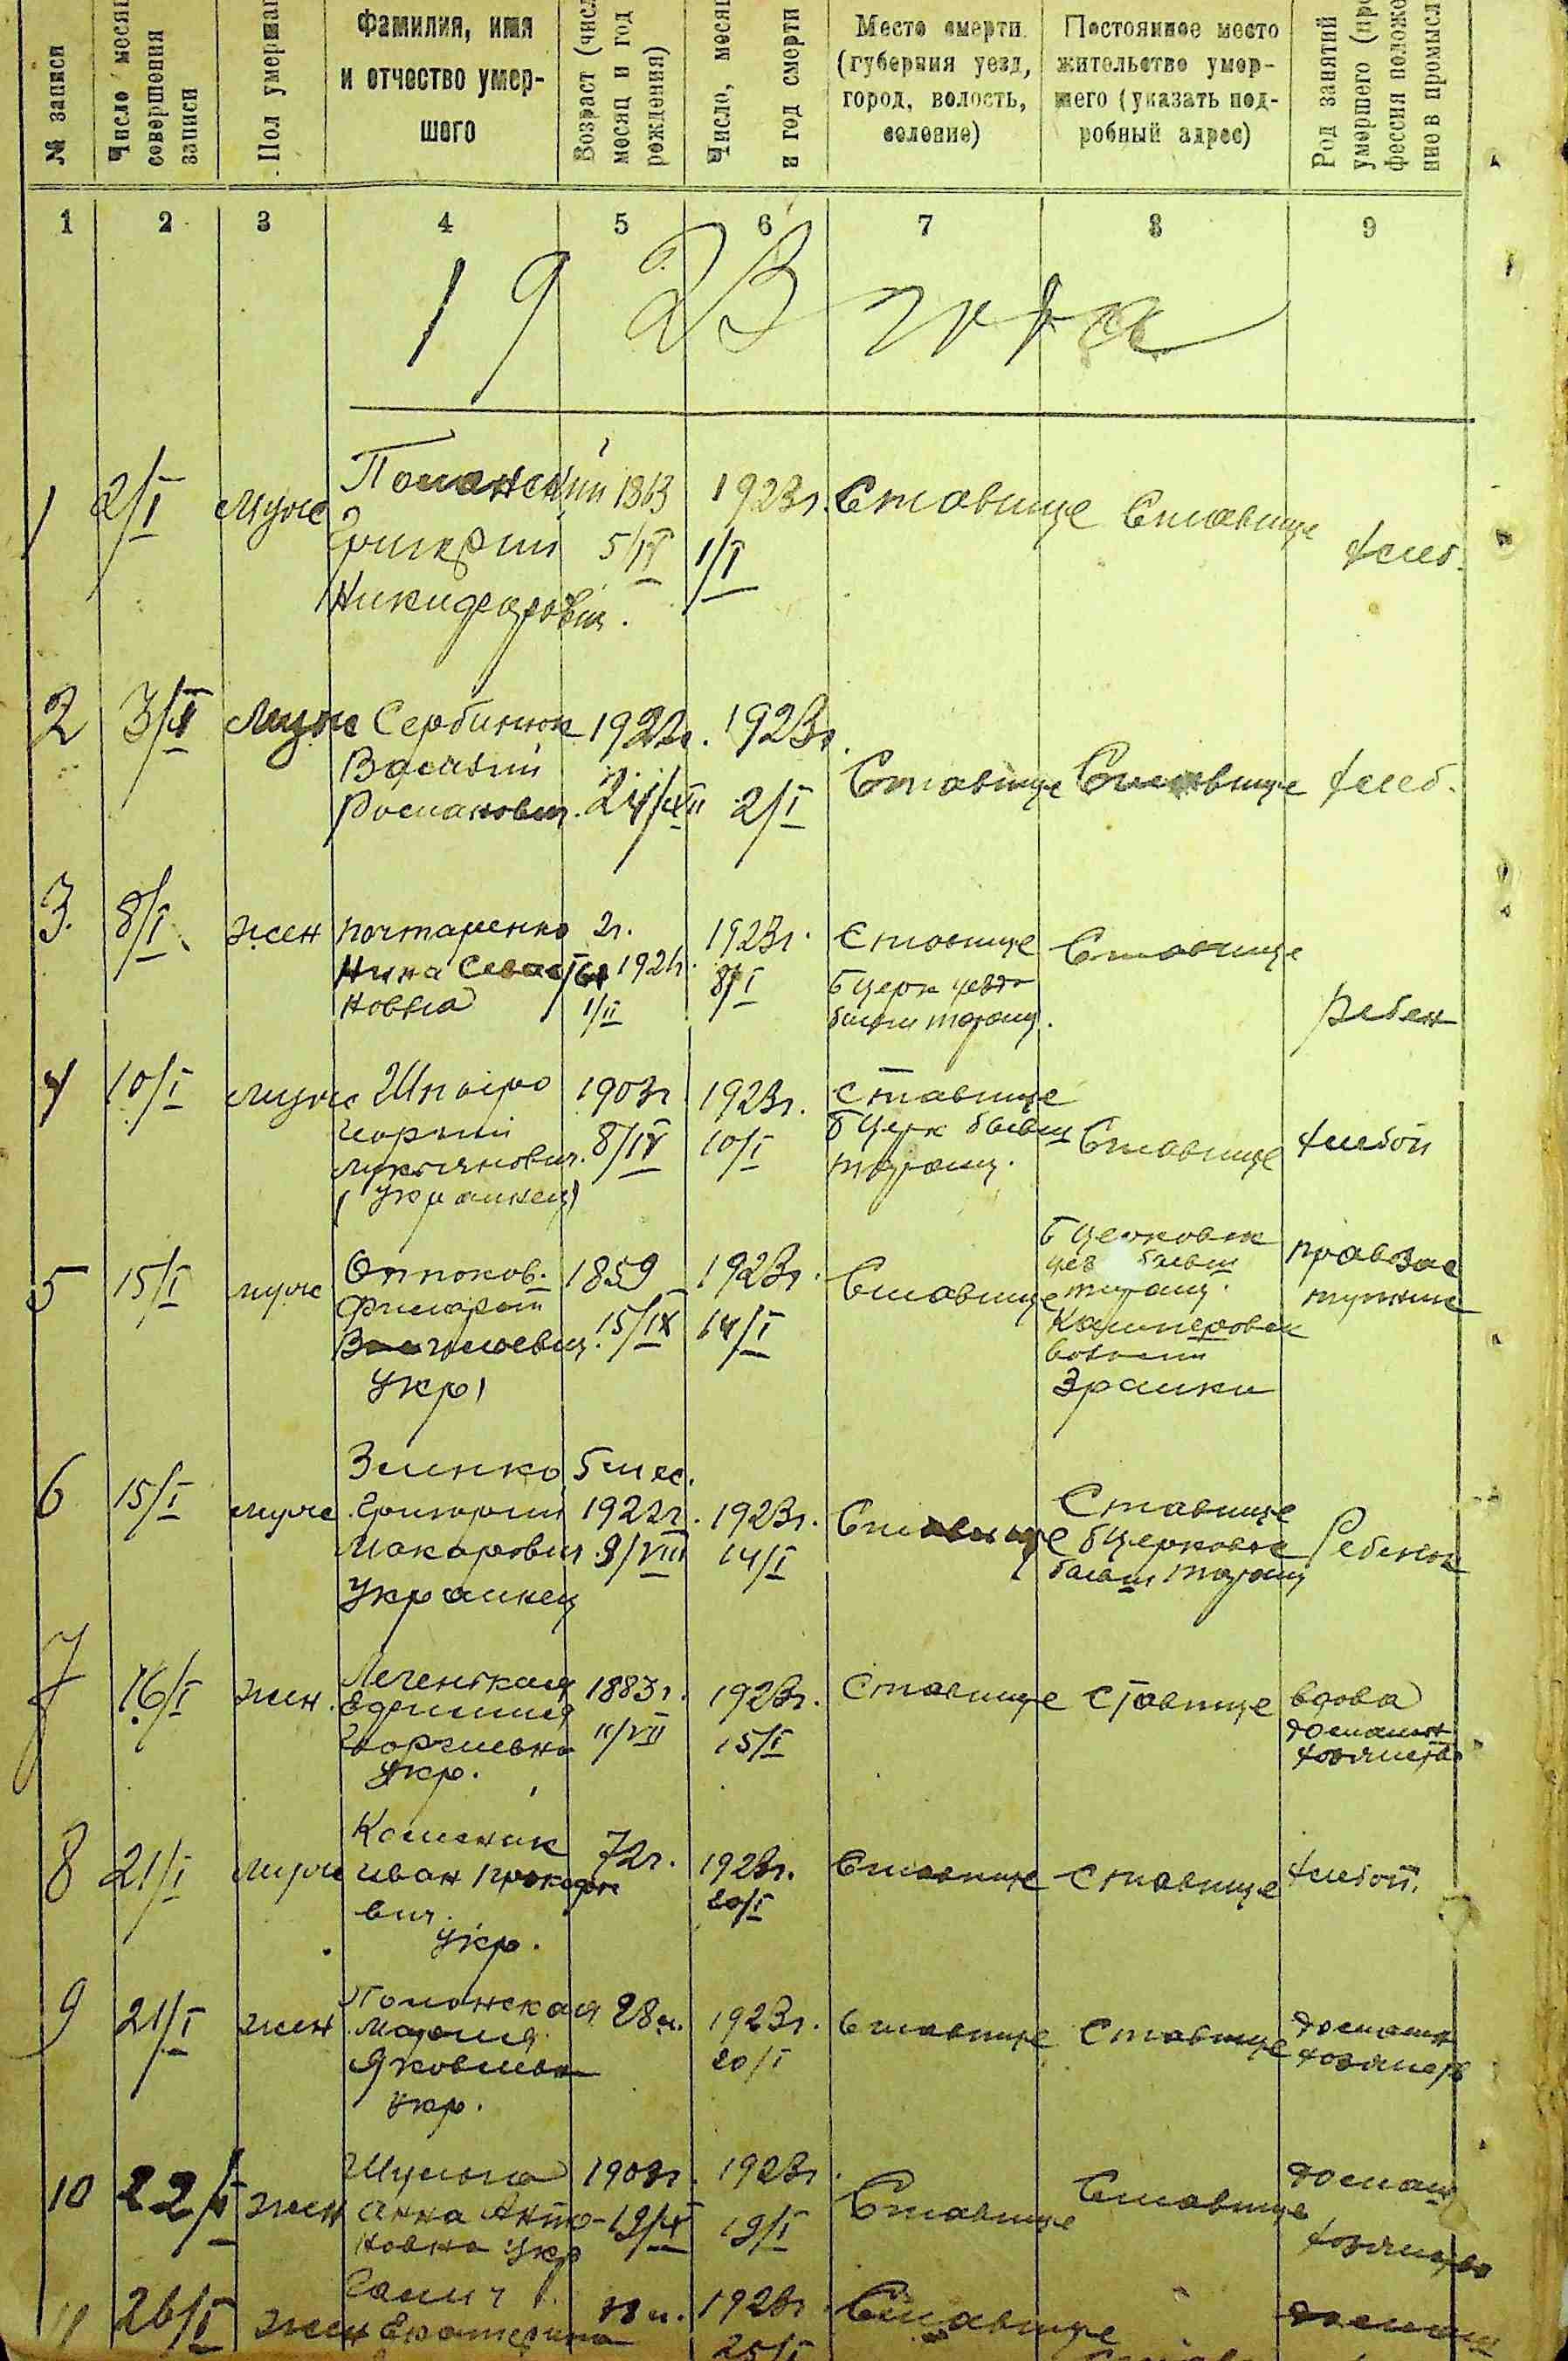 № записи
Число месяц
совершения
записи
Пол умершаг
Фамилия, имя
и отчество умер-
шого
Возраст (числ
месяц и год
рождения)
Число, месяц
и год смерти
Место смерти
(губерния уезд,
город, волость,
селение)
Постоянное место
жительство умер-
шего (указать под-
робный адрес)
Род занятий
умершего (про
фессия положе
ние в промысл
1 2 3 4 5 6 7 8 9
1923 года
1 2/I муж Поманский 1863 1923г. Ставище Ставище хлеб.
Григорий 5/IV 1/I
Никифорович.
2 3/I муж Сербинюк 1922г. 1923г. Ставище Ставище хлеб.
Василий 24/XII 2/I
Романович.
3. 8/I жен Почтаренко 2г. 1923г. Ставище Ставище ребен
Нина 1921г. 8/I БЦерк уезд
новна 1/II бывш Таращ.
4 10/I муж Шпыро 1903г 1923г. Ставище Ставище хлебоп
Георгий 8/IV 10/I БЦерк бывш
Лукьянович. Таращ.
(украинец)
5 15/I муж 1859 1923г. Ставище БЦерковск
15/IX 14/I уез бывш
Таращ.
укр волости
6 15/I муж Зинко 5 мес. Ставище Ставище Ребенок
Григорий 1922г. 1923г. БЦерковск
Макарович 9/VIII 14/I бывш Таращ
Украинец
7 16/I жен. 1883г. 1923г. Ставище Ставище вдова
Георгиевна 11/VII 15/I домашн
укр. хозяйство
8 21/I муж Коменик 72г. 1923г. Ставище Ставище хлебоп.
Иван 20/I
вич.
укр.
9 21/I жен Поманская 28л. 1923г. Ставище Ставище домашн
20/I хозяйств
Яковлевна
укр.
10 22/I жен Шульга 1903г. 1923г. Ставище Ставище домаш
Анна Анто- 19/XI 19/I хозяйство
новна укр
11 26/I жен 1923г. Ставище домаш
Екатерина 25/I